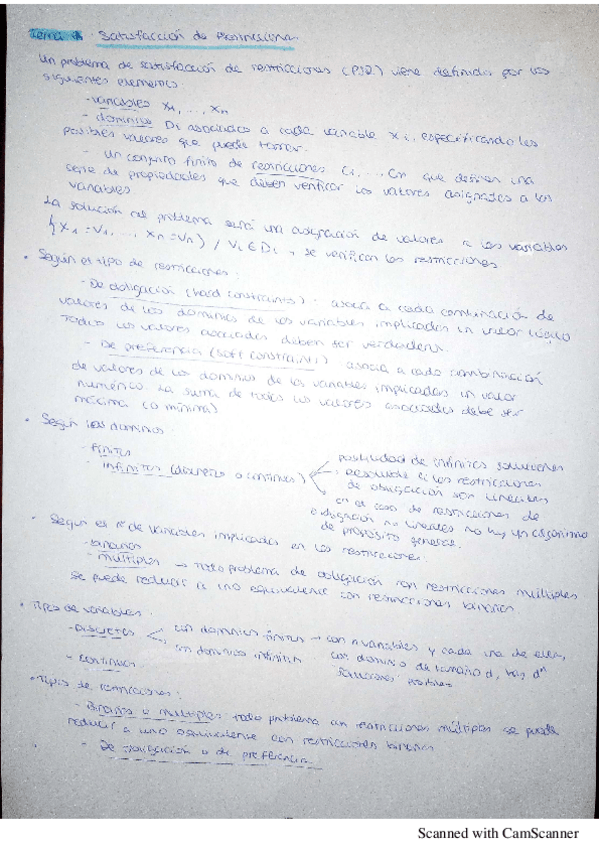 Tema · Satisfacción de Restricciones
Un problema de satisfacción de restricciones (PSR) viene definido por los
siguientes elementos:
- variables X1, ..., Xn
- dominios Di asociados a cada variable Xi, especificando los
posibles valores que puede tomar.
- un conjunto finito de restricciones C1, ..., Cn que definen una
serie de propiedades que deben verificar los valores asignados a las
variables
La solución del problema será una asignación de valores a las variables
{X1 = V1, ..., Xn = Vn} / Vi ∈ Di, se verifican las restricciones
• Según el tipo de restricciones:
- De obligación (hard constraints): asocia a cada combinación de
valores de los dominios de las variables implicadas un valor lógico
Todos los valores asociados deben ser verdaderos.
- De preferencia (soft constraints) asocia a cada combinación
de valores de los dominios de las variables implicadas un valor
numérico. La suma de todos los valores asociados debe ser
máxima (o mínima)
• Según los dominios:
- Finitos
- infinitos (discretos o continuos)
posibilidad de infinitas soluciones
Resoluble si las restricciones
de obligación son lineales
en el caso de restricciones de
obligación no lineales no hay un algoritmo
de propósito general.
• Según el nº de variables implicadas en las restricciones:
- binarias
- múltiples → todo problema de obligación con restricciones múltiples
se puede reducir a uno equivalente con restricciones binarias
• Tipos de variables:
- Discretas
con dominios finitos → con n variables y cada una de ellas,
con dominio de tamaño d, hay d^n
soluciones posibles
con dominios infinitos
- continuas
• Tipos de restricciones:
- Binarias o múltiples: todo problema con restricciones múltiples se puede
reducir a uno equivalente con restricciones binarias
- De obligación o de preferencia.
Scanned with CamScanner